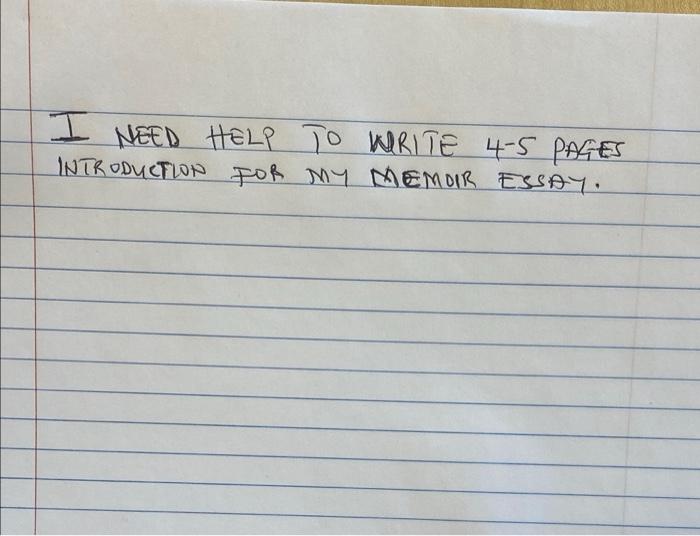 I NEED HELP TO WRITE 4-5 PAGES
INTRODUCTION FOR MY MEMOIR ESSAY.